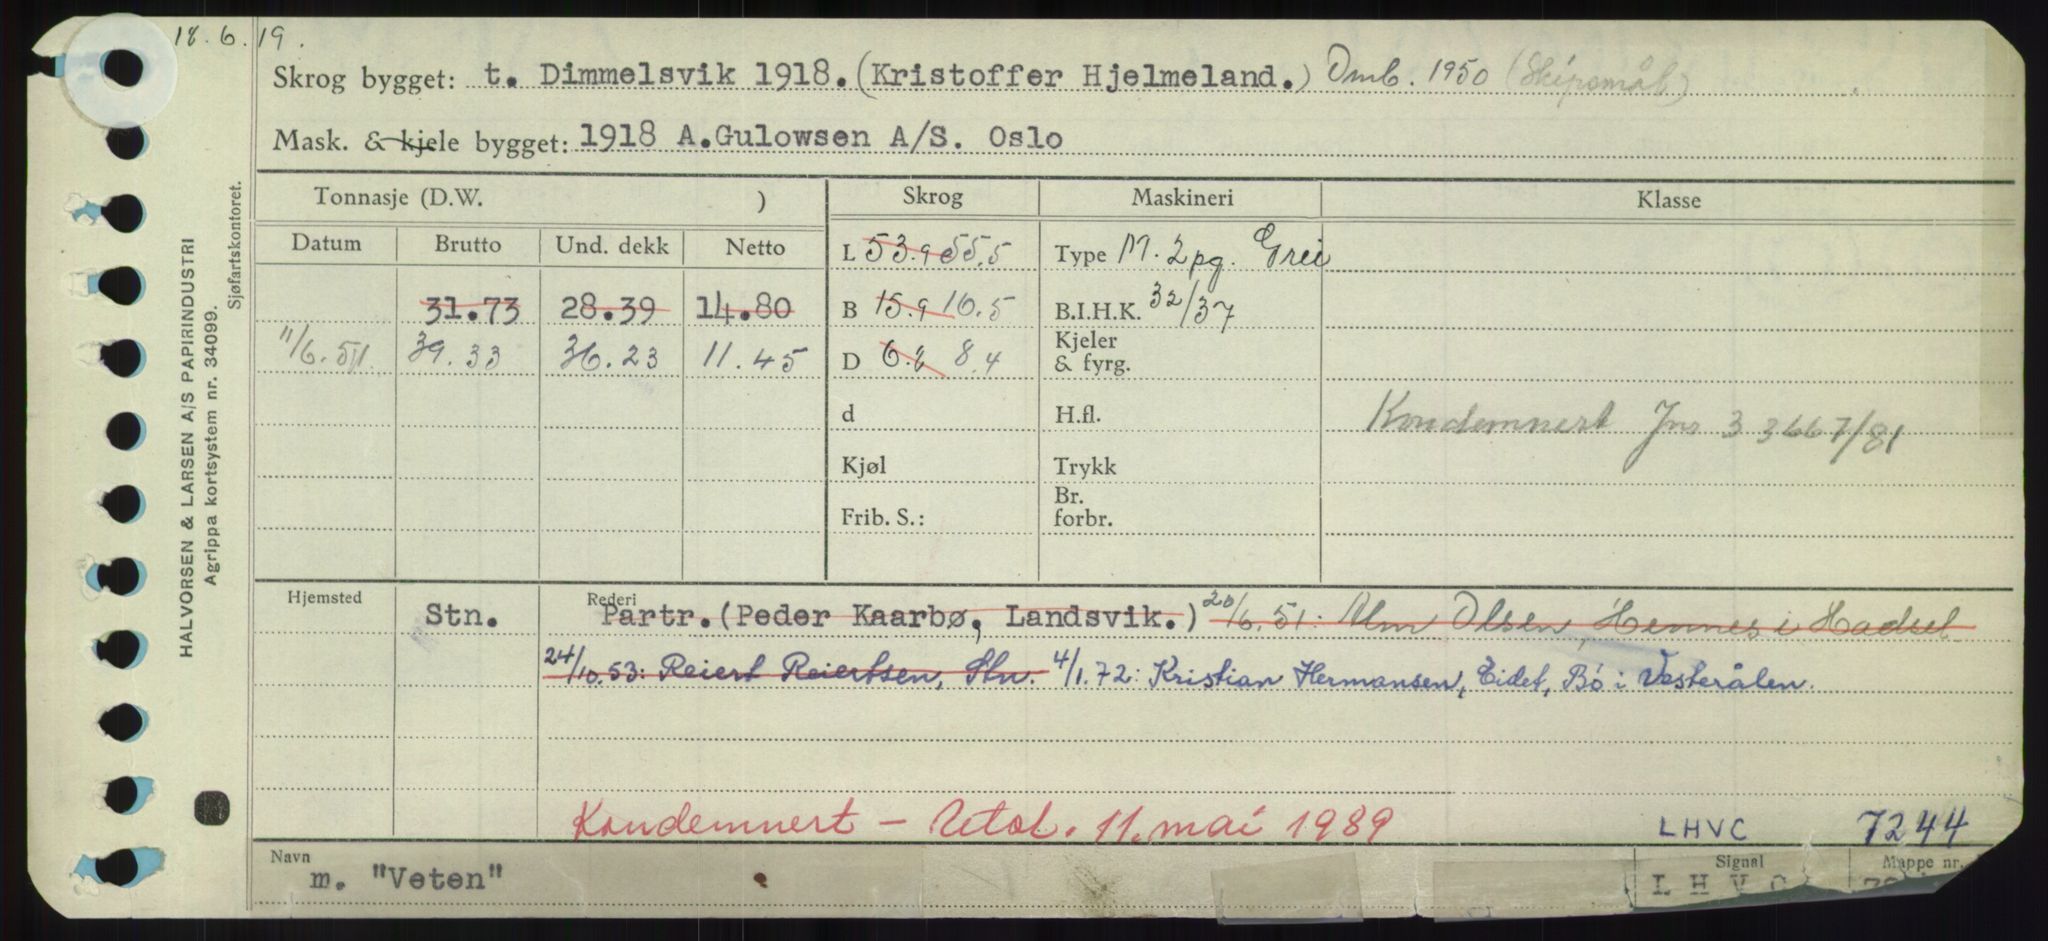 18.6.19.
Skrog bygget: t. Dimmelsvik 1918. (Kristoffer Hjelmeland.) Omb. 1950 (Skipsmål)
Mask. & kjele bygget: 1918 A.Gulowsen A/S. Oslo
Tonnasje (D.W. ) Skrog Maskineri Klasse
Datum Brutto Und. dekk Netto L 53.9 55.5 Type M. 2 pg. Grei
31.73 28.39 14.80 B 15.9 16.5 B.I.H.K. 32/37
11/6.51. 39.33 36.23 11.45 D 8.4 Kjeler & fyrg.
d H.fl. Kondemnert Jnr 33667/81
Kjøl Trykk
Frib. S.: Br. forbr.
Hjemsted Stn. Rederi Partr. (Peder Kaarbø, Landsvik.) 20/6.51: Alm Olsen, Hennes i Hadsel
24/10.53: Reiert Reiertsen, Stn. 4/1.72: Kristian Hermansen, Eidet, Bø i Vesterålen.
Kondemnert - 11. mai 1989 LHVC 7244
Navn m. "Veten" Signal LHVC Mappe nr.
HALVORSEN & LARSEN A/S PAPIRINDUSTRI
Agrippa kortsystem nr. 34099.
Sjøfartskontoret.